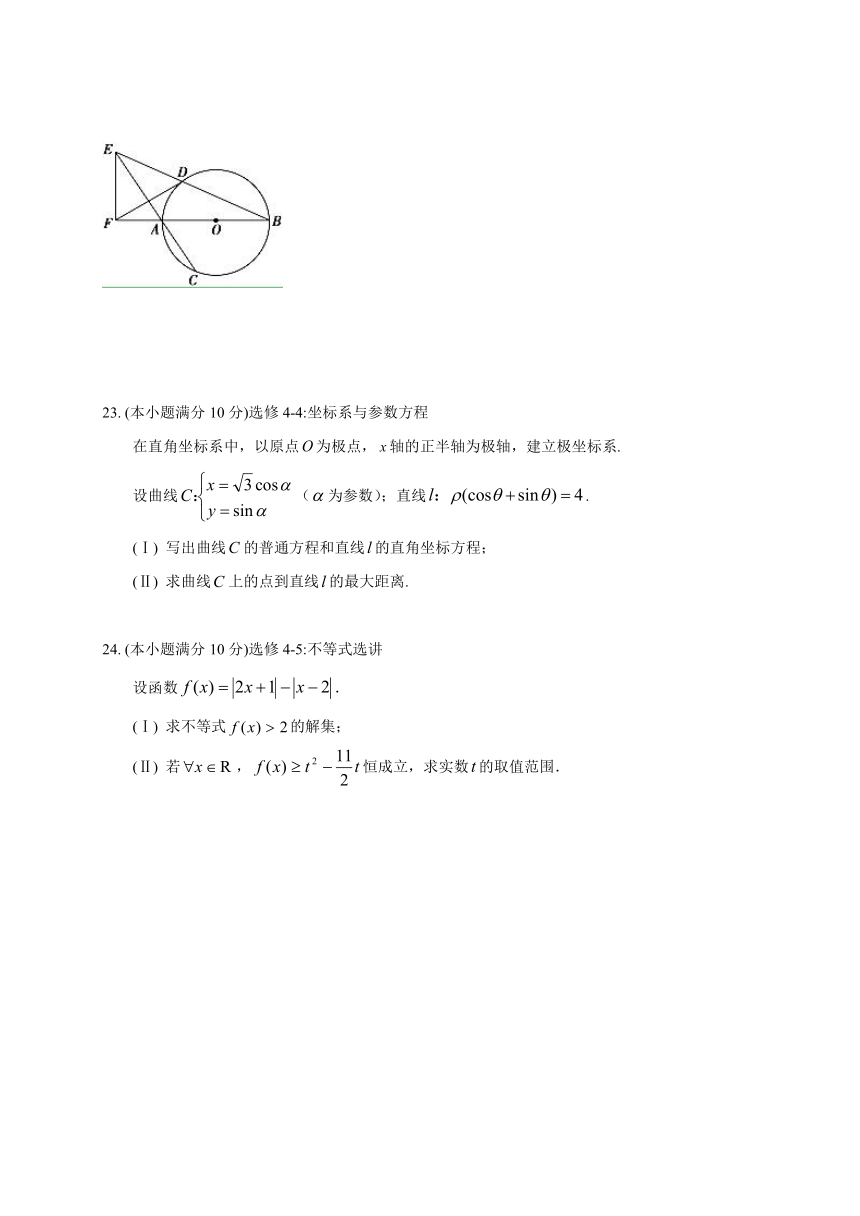 E
D
F
A
O
B
C
23. (本小题满分 10 分)选修 4-4:坐标系与参数方程
在直角坐标系中，以原点 O 为极点， x 轴的正半轴为极轴，建立极坐标系.
设曲线 C:{x = √3 cos α
y = sin α （α 为参数）；直线 l：ρ(cos θ + sin θ) = 4 .
(Ⅰ) 写出曲线 C 的普通方程和直线 l 的直角坐标方程；
(Ⅱ) 求曲线 C 上的点到直线 l 的最大距离.
24. (本小题满分 10 分)选修 4-5:不等式选讲
设函数 f(x) = |2x+1| − |x−2| .
(Ⅰ) 求不等式 f(x) > 2 的解集；
(Ⅱ) 若 ∀x ∈ R ， f(x) ≥ t² − 11/2 t 恒成立，求实数 t 的取值范围.